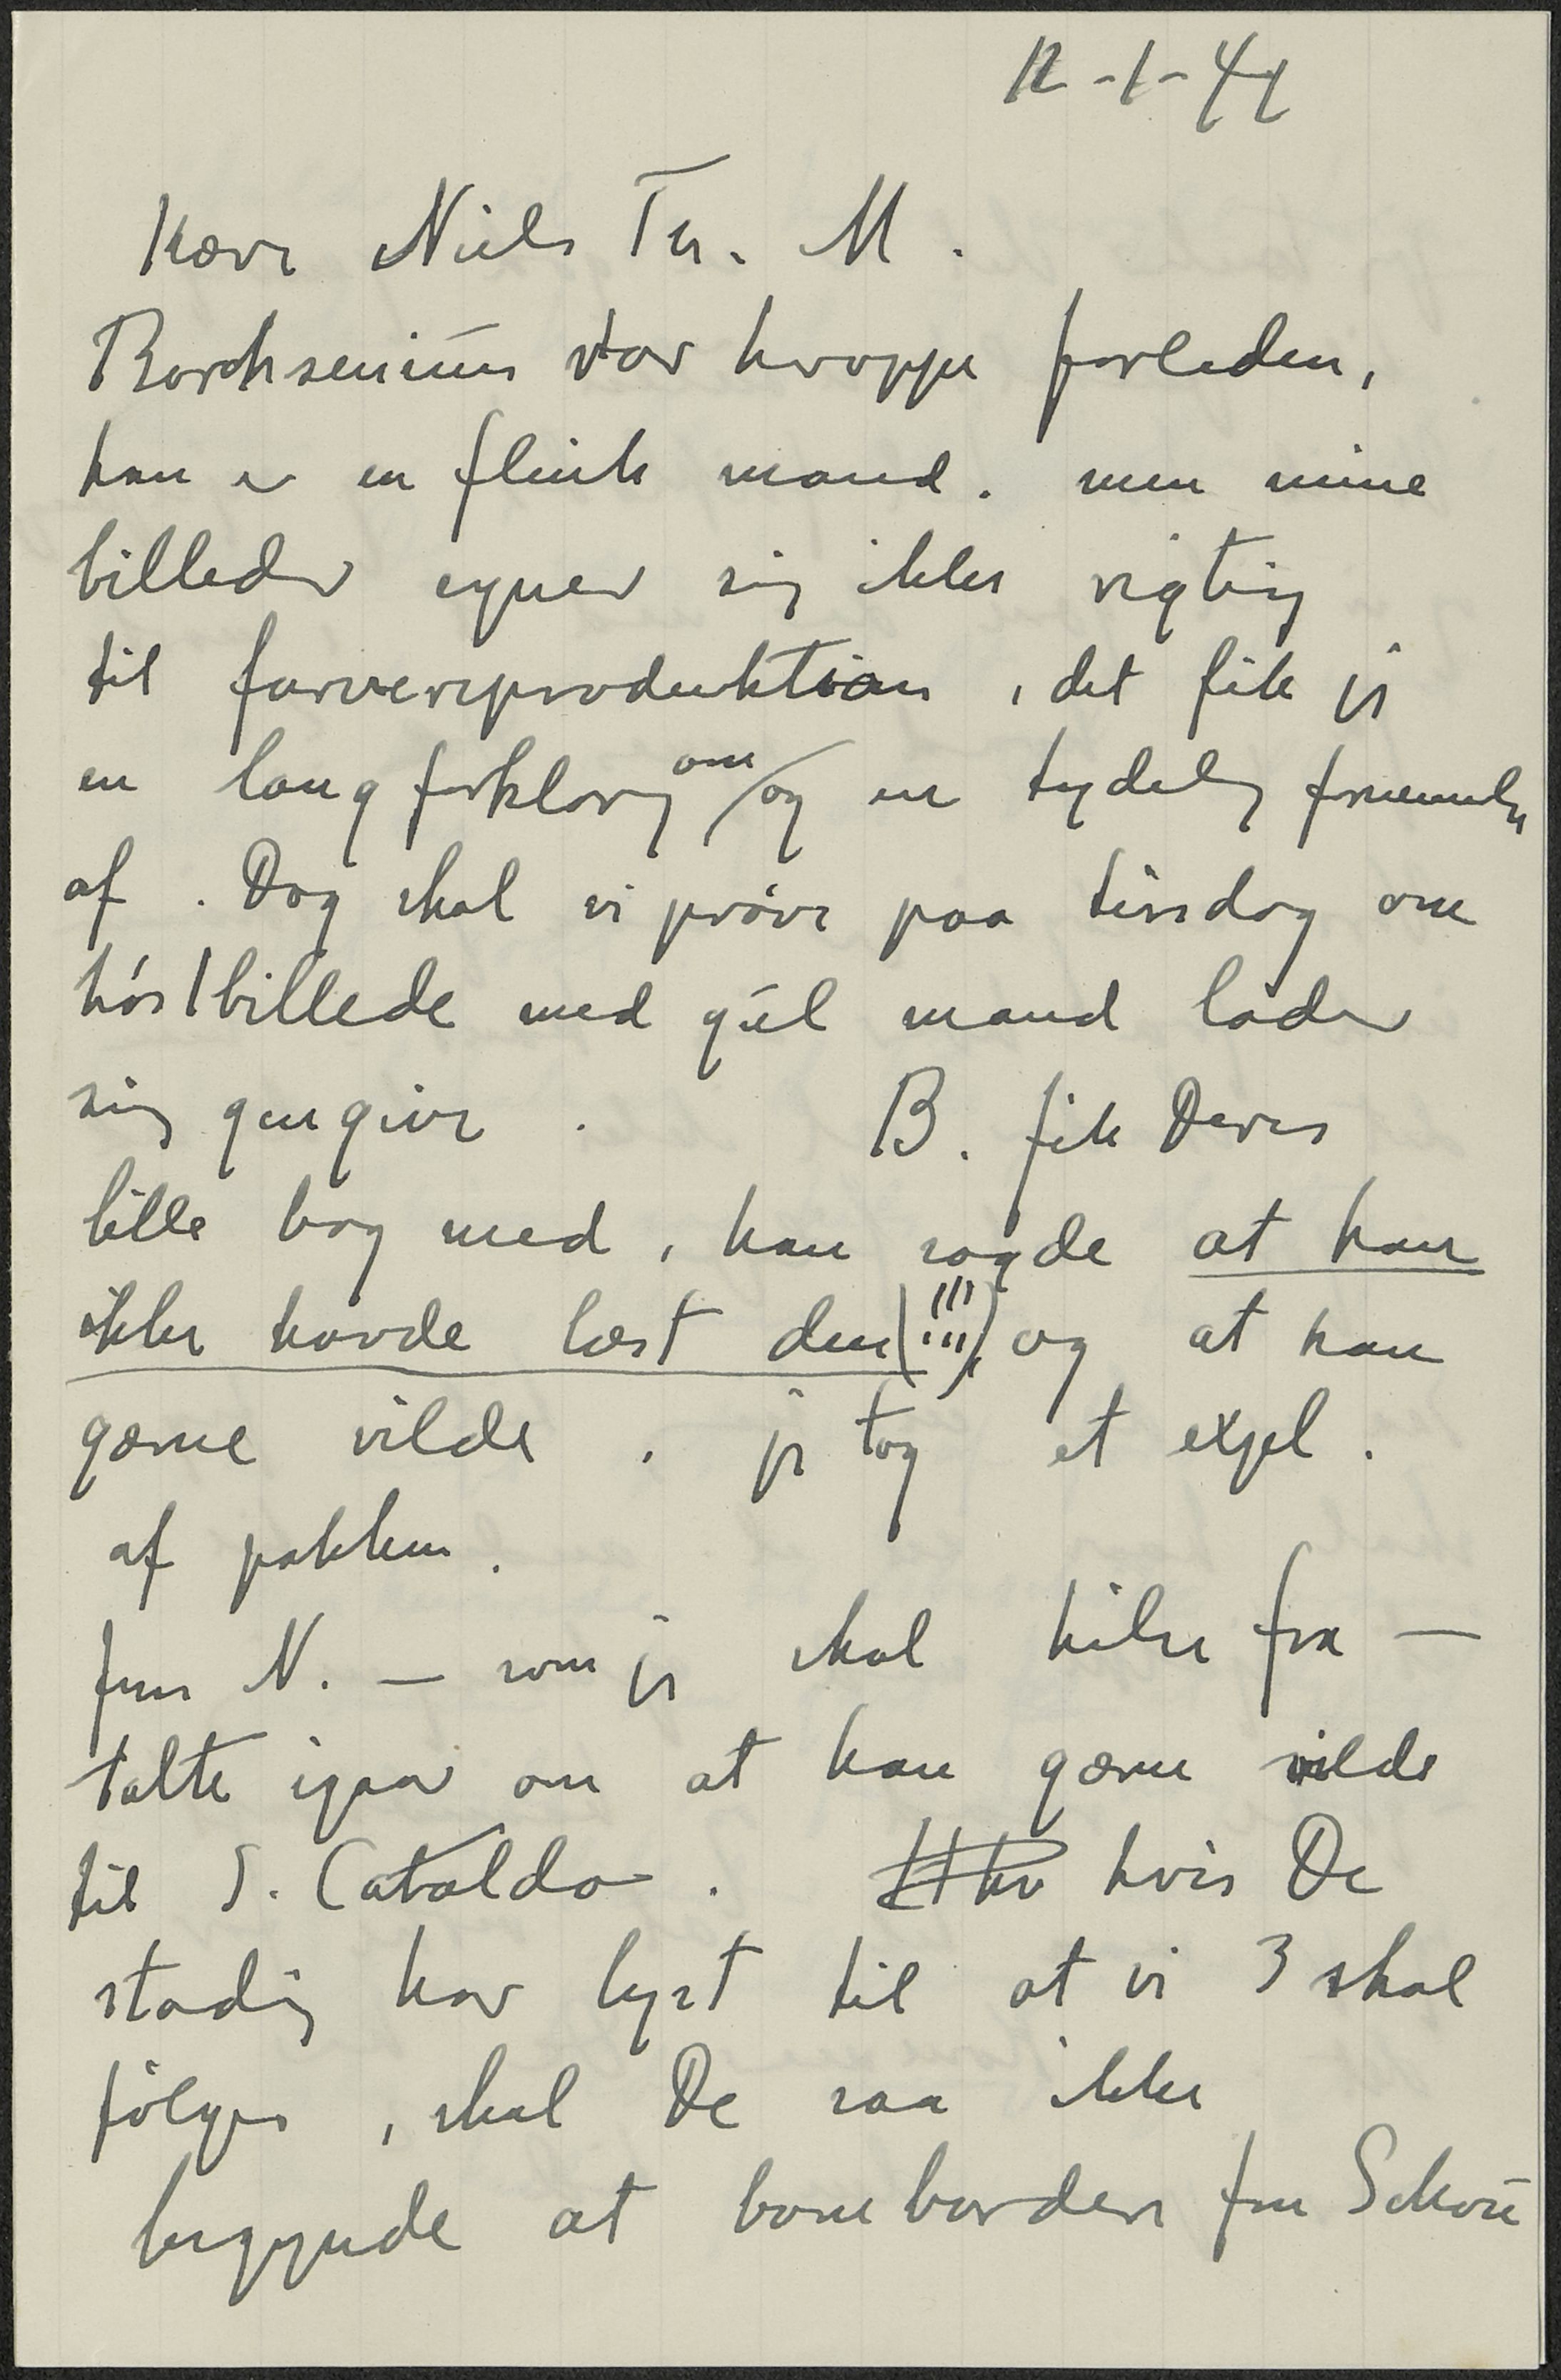 12-1-44
Kære Niels Th. M.
Borchsenius var heroppe forleden,
han er en flink mand. men mine
billeder egner sig ikke rigtig
til farvereproduktion, det fik jeg
en lang forklaring om og en tydelig fornemmelse
af. Dog skal vi prøve paa tirsdag om
høstbillede med gul mand lader
sig gengive. B. fik Deres
lille bog med, han sagde at han
ikke havde læst den (!!!) og at han
gærne vilde. jeg tog et expl.
af pakken.
fru N. — som jeg skal hilse fra —
talte igaar om at hun gærne vilde
til S. Cataldo. hvis De
stadig har lyst til at vi 3 skal
følges, skal De saa ikke
begynde at bombardere fru Schou